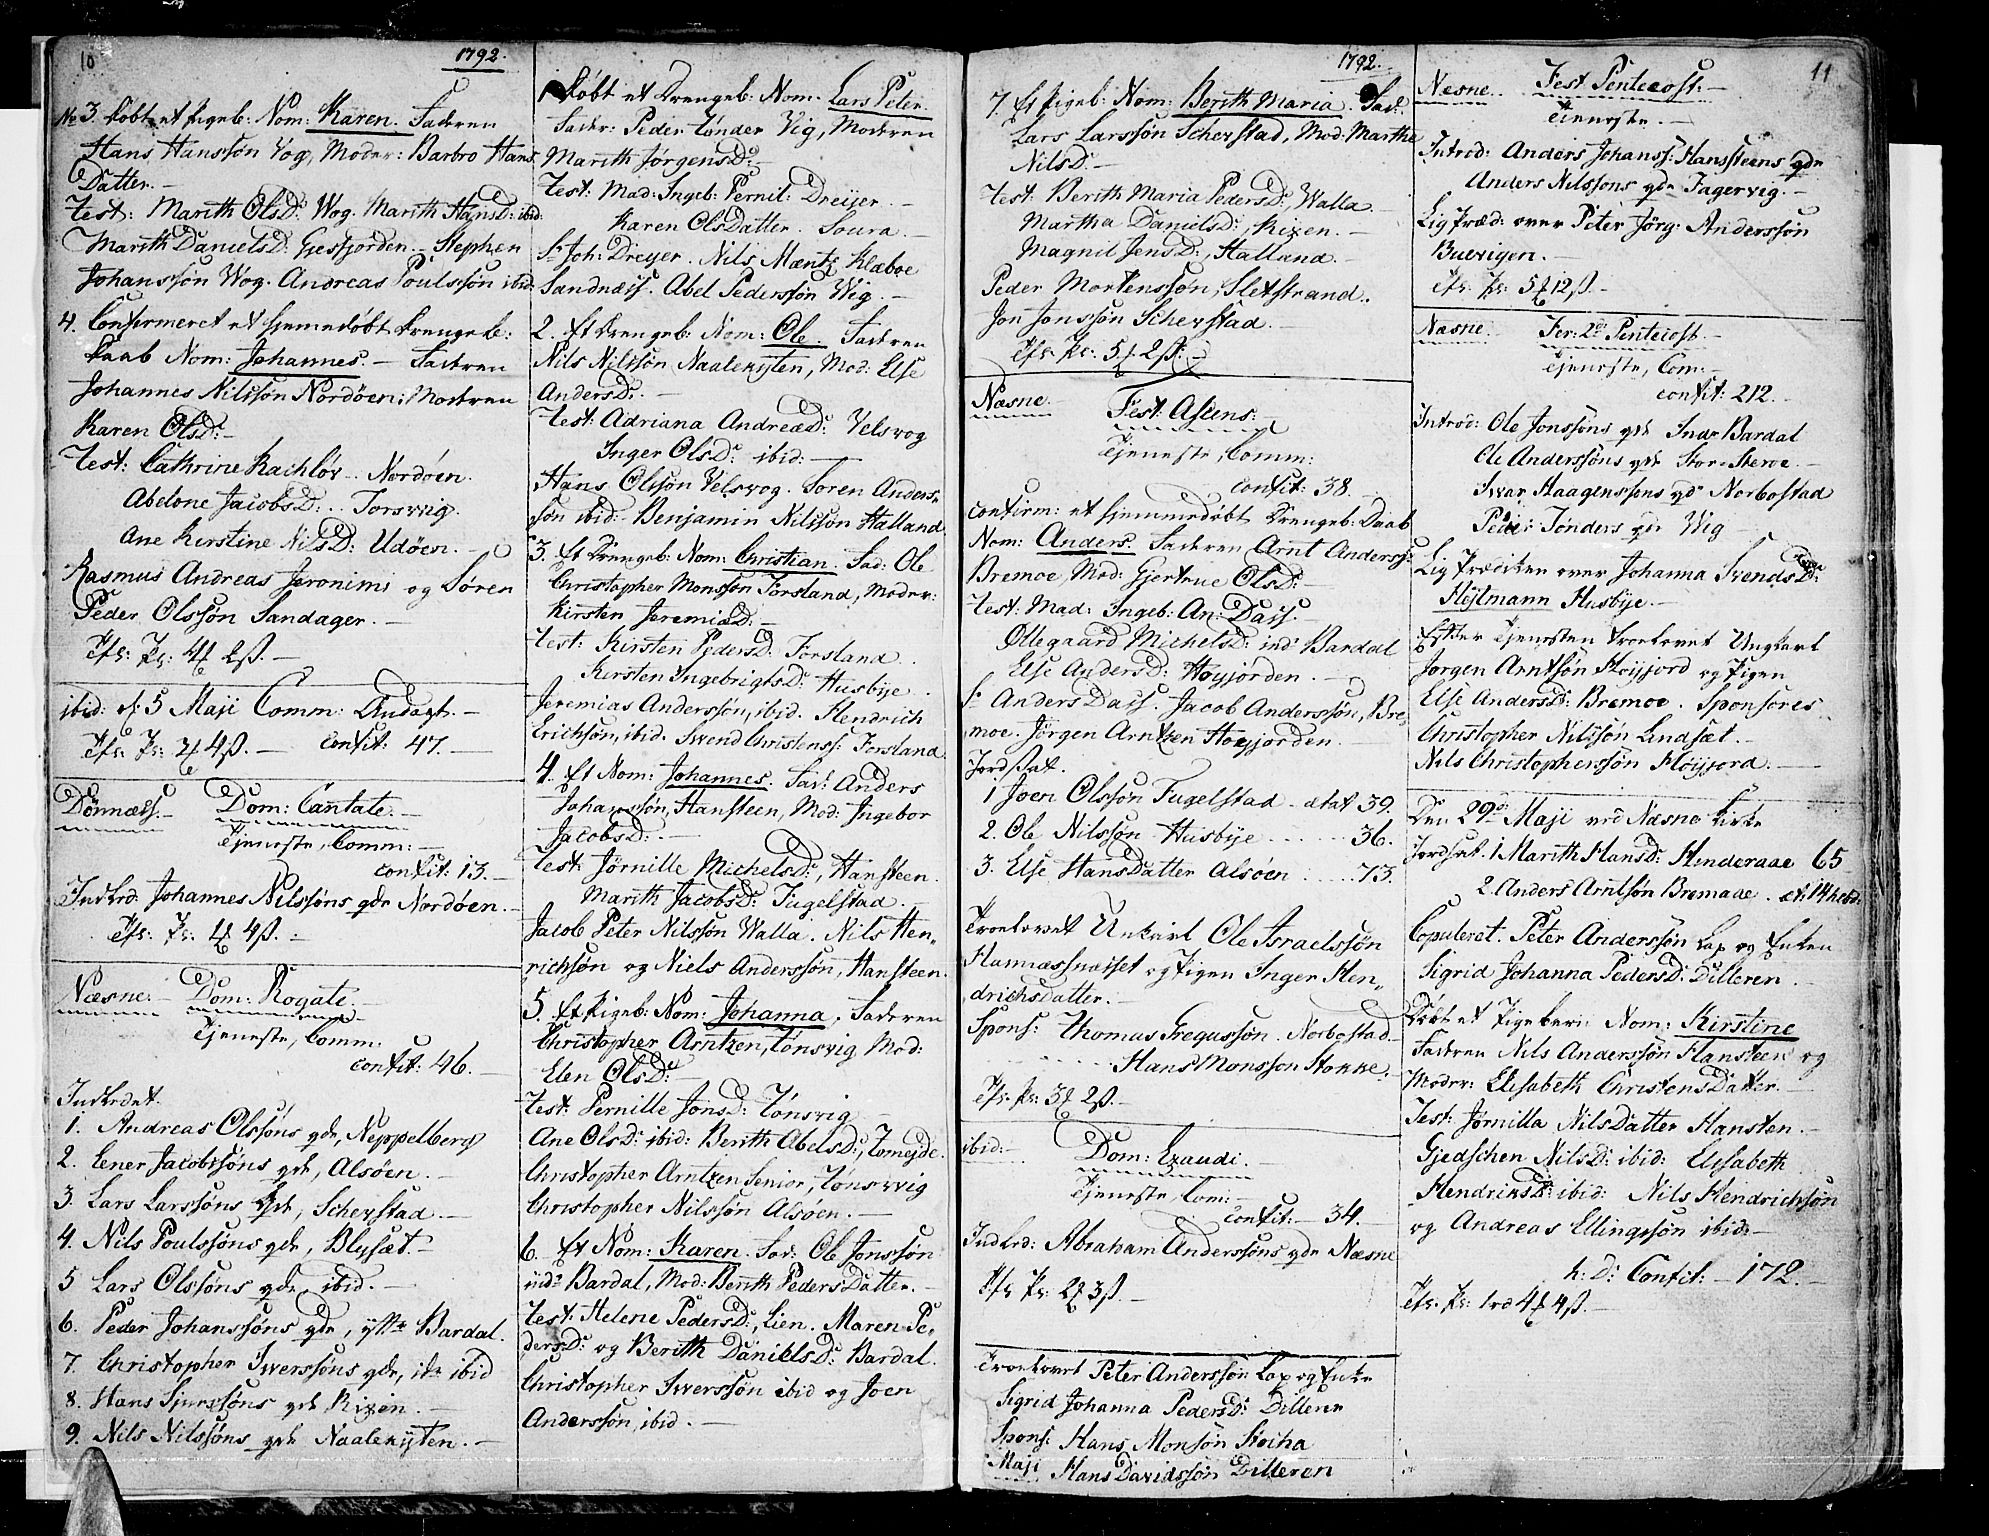 10
1792.
No 3. døbt et Pigeb: Nom: Karen. Faderen
Hans Hanssøn Vog, Moder: Barbro Hans
Datter.-
Test: Marith OlsD: Wog. Marith HansD: ibid:
Marith DanielsD: Stephen
Johanssøn Wog. Andreas Poulssøn ibid
4. Confirmeret et hjemmedøbt Drengeb:
Daab Nom: Johannes. - Faderen
Johannes Nilssøn Nordøen, Moderen
Karen OlsD:-
Test: Cathrine Nordøen.
Abelone JacobsD: Torsvig.
Ane Kirstine NilsD: Udøen. -
Rasmus Andreas Jeronimi og Søren
Peder Olssøn Sandager. -
ibid: d: 5 Maji Comm: Andagt. -
confit: 47.
Dønnæss.- Dom: Cantate. -
Tjeneste, Comm: -
confit: 13. -
Indled: Johannes Nilssøns qde Nordøen. -
Næsne:- Dom: Rogate. -
Tjeneste, Comm:
confit: 46. -
Indledet.
1. Andreas Olssøns qde, Neppelberg
2. Ener Jacobssøns qde, Alsøen. -
3. Lars Larssøns qde, Scherstad. -
4. Nils Poulssøns qde, Blysæt. -
5 Lars Olssøns qde, ibid. -
6. Peder Johanssøns qde, ytte Bardal.
7. Christopher Iverssøns qde, ibid
8. Hans Sjurssøns qde Rixen. -
9. Nils Nilssøns qde Naalesyten. -
1 døbt et Drengeb: Nom: Lars Peter.
Fader: Peder Tønder Vig, Moderen
Marith JørgensD: -
Test: Mad: Ingeb: Pernil: Dreyer. -
Karen OlsDatter. Soura. -
Sr Joh: Dreyer. Nils Mentz Klæboe
Sandnæss. Abel Pederssøn Wig. -
2. Et Drengeb: Nom: Ole Faderen
Nils Nilssøn Naalesyten, Mod: Else
AndersD: -
Test: Adriana AndreæD: Velsvog
Inger OlsD: ibid: -
Hans Olssøn Velsvog. Soren Anders-
søn ibid: Benjamin Nilssøn Halland.
3. Et Drengeb: Nom: Christian. Fad: Ole
Christopher Monssøn Forsland, Moder:
Kirsten JeremiæD: -
Test: Kirsten PedersD: Forsland.
Kirsten IngebrigtsD: Husbye.
Jeremias Anderssøn, ibid. Hendrich
Erichsøn, ibid. Svend Christenss: Forsland.
4. Et Nom: Johannes. Fad: Anders
Johanssøn, Hansteen, Mod: Ingebor
JacobsD: -
Test: Jørnille MichelsD:, Hansteen.
Marith JacobsD: Fugelstad. -
Jacob Peter Nilssøn Walla. Nils Hen-
richsøn og Niels Anderssøn, Hansteen.
5. Et Pigeb: Nom: Johanna. Faderen
Christopher Arntzen, Tønsvig Mod:
Elen OlsD: -
Test: Pernille JonsD: Tønsvig -
Ane OlsD: ibid: Berith AbelsD:,
Christopher Arntzen Senior, Tønsvig
Christopher Nilssøn Alsøen. -
6. Et Nom: Karen. Far: Ole Jonssøn
ind: Bardal, Mod: Berith PedersDatter. -
Test: Helene PedersD:, Lien. Maren Pe-
dersD: og Berith DanielsD: Bardal.
Christopher Iverssøn ibid og Joen
Anderssøn, ibid. -
1792.
7. Et Pigeb: Nom: Berith Maria. Fad:
Lars Larssøn Scherstad, Mod: Martha
NilsD: -
Test: Berith Maria PedersD:, Walla -
Martha DanielsD:, Rixen. -
Magnil JensD:, Halland. -
Peder Mortenssøn, Sletstrand.
Jon Jonssøn Scherstad. -
Næsne. Fest: Ascens: -
Tjeneste, Comm:
confit: 38. -
confirm: et hjemmedøbt Drengeb: Daab
Nom: Anders. Faderen Arnt Anderss:
Bremoe, Mod: Gjertrue OlsD: -
Test: Mad: Ingeb: An: Dass. -
Ollegaard MichelsD: ind: Bardal
Else AndersD: Høyjorden. -
Sr Anders Dass. Jacob Anderssøn, Bre-
moe. Jørgen Arntzen Høyjorden. -
Jordfæstet.
1 Joen Olssøn Fugelstad - ætat 39.
2. Ole Nilssøn Husbye 36.
3. Else HansDatter Alsøen 73.
Trolovet Unkarl Ole Israelssøn
Hannæssnæsset og Pigen Inger Hen-
drichsdatter. -
Spons: Thomas Gregussøn. Norbostad -
Hans Monssøn Stokke. -
ibid: - Dom: Exaudi. -
Tjeneste, Com: -
confit: - 34. -
Indled: Abraham Anderssøns qde Næsne
Trolovet Peter Anderssøn Lap og Enke
Sigrid Johanna PedersD: Dilleren
Spons: Hans Monsøn
Maji Hans Davidssøn Dilleren
11
Næsne. Fest: Pentecost: -
Tjeneste. -
Introd: Anders Johanss: Hansteens qde
Anders Nilssøns qde Fagervig. -
Ligpræd: over Peter Jörg: Anderssøn
Buevigen. -
Næsne. Fer: 2da Pentecost. -
Tjeneste, Com: -
confit: 212. -
Introd: Ole Jonssøns qde Indr Bardal
Ole Anderssøns qde Stor-Steroe. -
Iwar Haagenssøns qde Norbostad
Peder Tønders qde Wig
Lig Prædiken over Johanna SvendsD:
Heltmann Husbye. -
Efter Tjenesten trolovet Ungkarl
Jørgen Arntsøn Høyjord og Pigen
Else AndersD: Bremoe. Sponsores
Christopher Nilssøn Lindsæt. -
Nils Christopherssøn Høyjord. -
Den 29de Maji ved Næsne Kirke
Jordfæstet. 1 Marith HansD: Hinderaae 65
2 Anders Arntsøn Bremade
Copuleret. Peter Anderssøn Lap og Enken
Sigrid Johanna PedersD: Dilleren. -
Døbt et Pigebarn: Nom: Kirstine
Faderen Nils Anderssøn Hansteen og
Moder: Elisabeth ChristensDatter. -
Test: Jørnilla NilsDatter Hansten. -
Gjedschen NilsD: ibid: Elisabeth
HendriksD: ibid: Nils Hendrichsøn
og Andreas Ellingssøn ibid: -
h: D: Confit: - 172. -